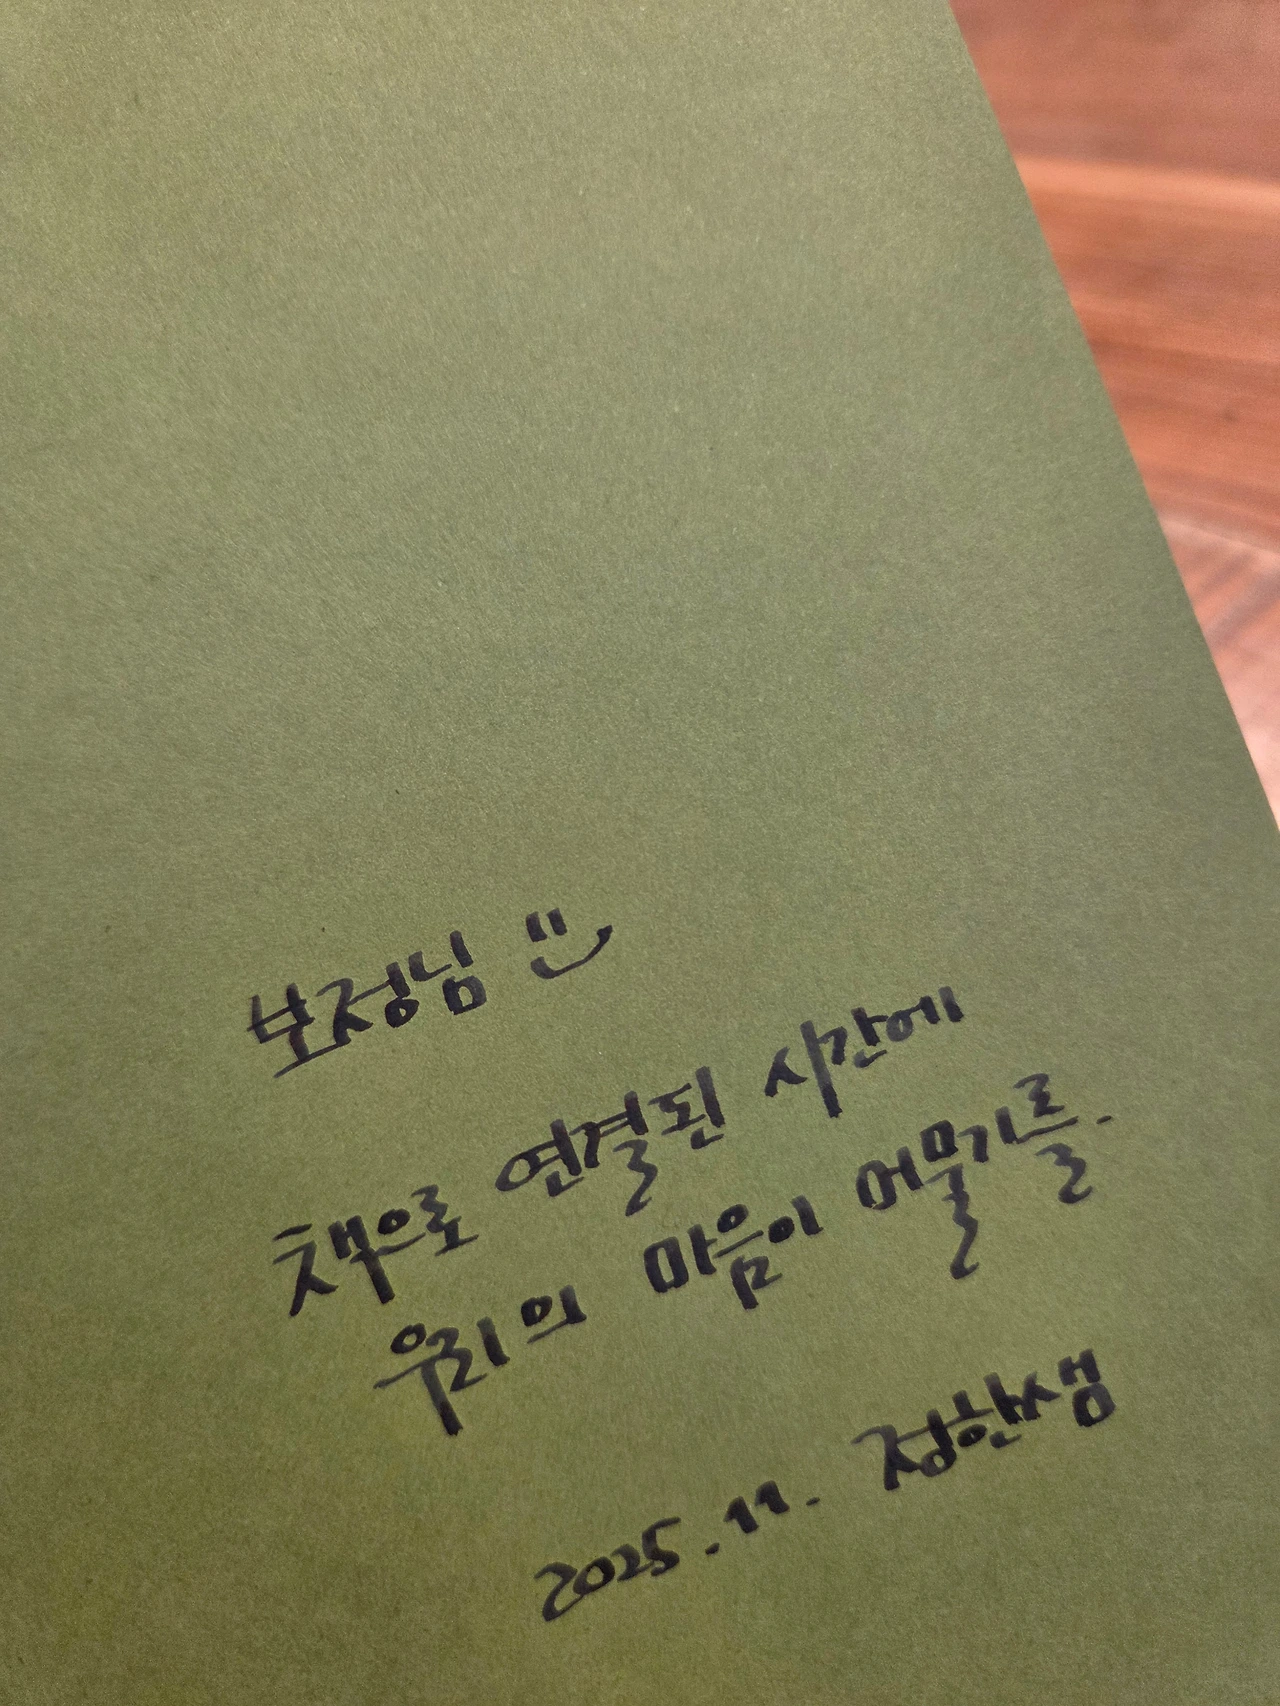 보정님
책으로 연결된 시간에
우리의 마음이 머물기를.
2025.11. 정한샘